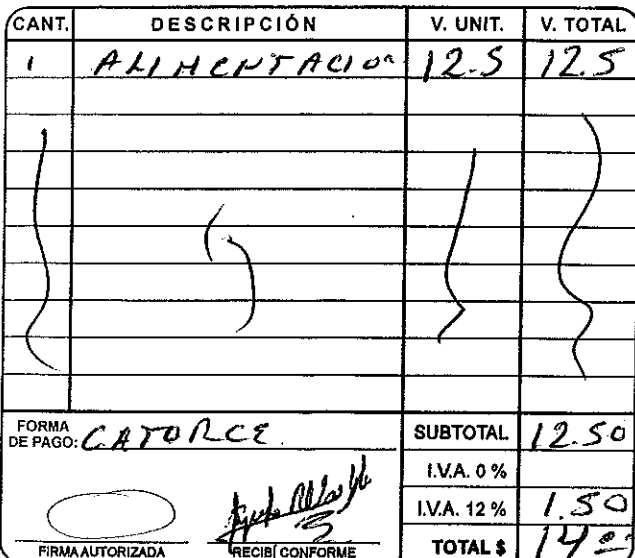 CANT. DESCRIPCIÓN V. UNIT. V. TOTAL
1 ALIMENTACION 12.5 12.5
FORMA DE PAGO: CATORCE SUBTOTAL 12.50
I.V.A. 0 %
I.V.A. 12 % 1.50
TOTAL $ 14.00
FIRMA AUTORIZADA RECIBÍ CONFORME